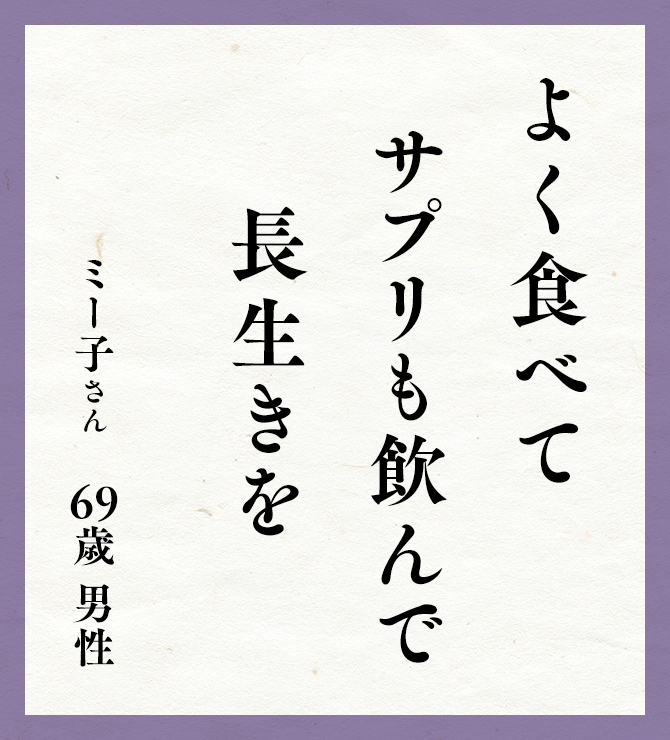 よく食べて
サプリも飲んで
長生きを
ミー子さん 69歳 男性